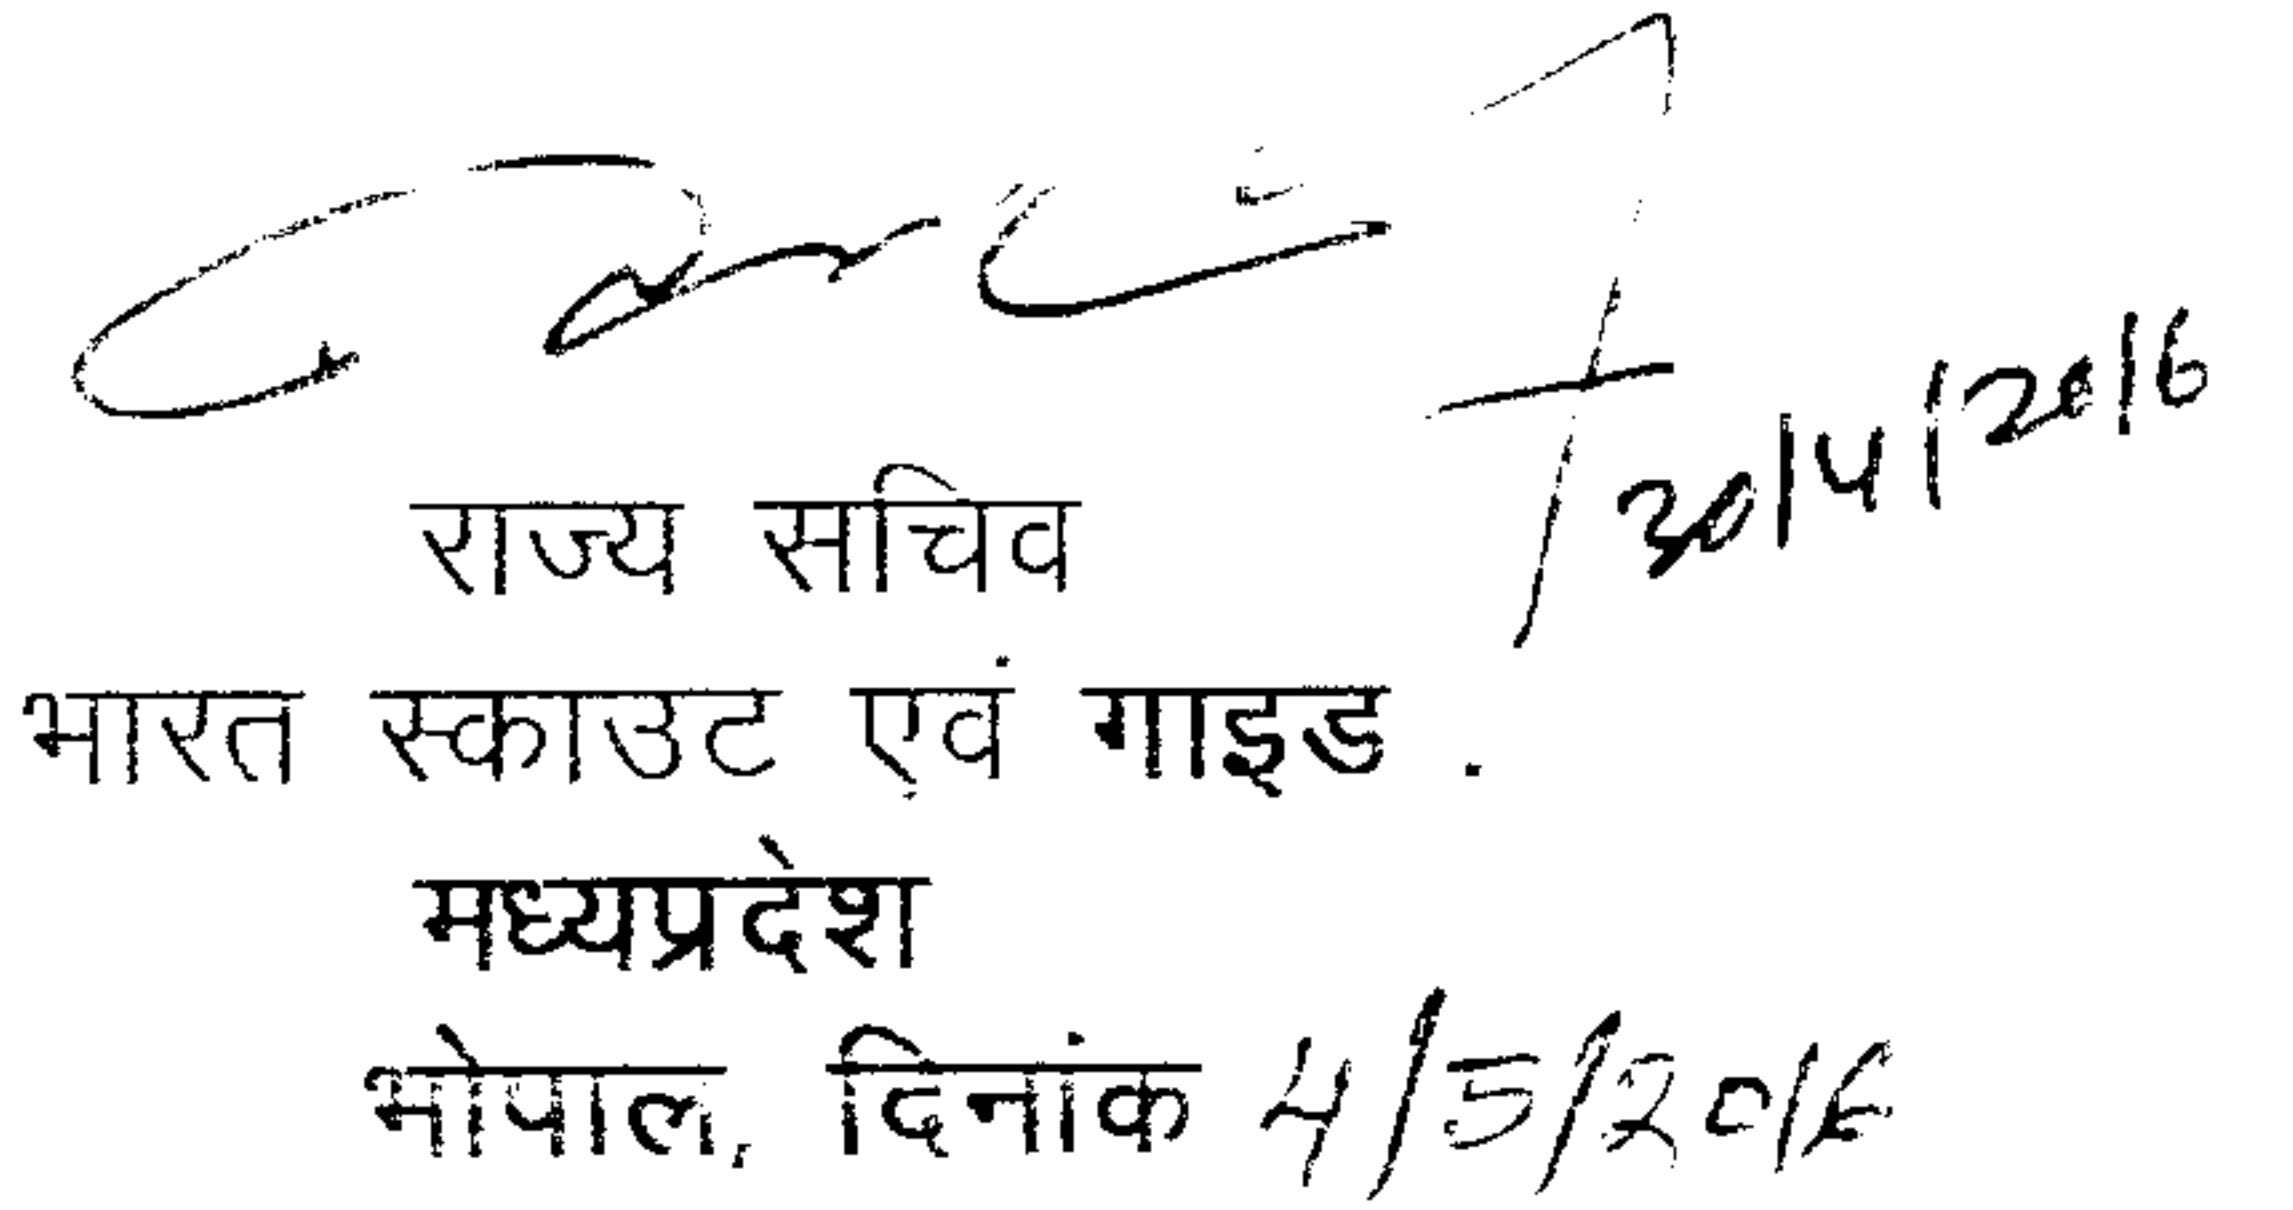 30/4/2016
राज्य सचिव
भारत स्काउट एवं गाइड .
मध्यप्रदेश
भोपाल, दिनांक 4/5/2016